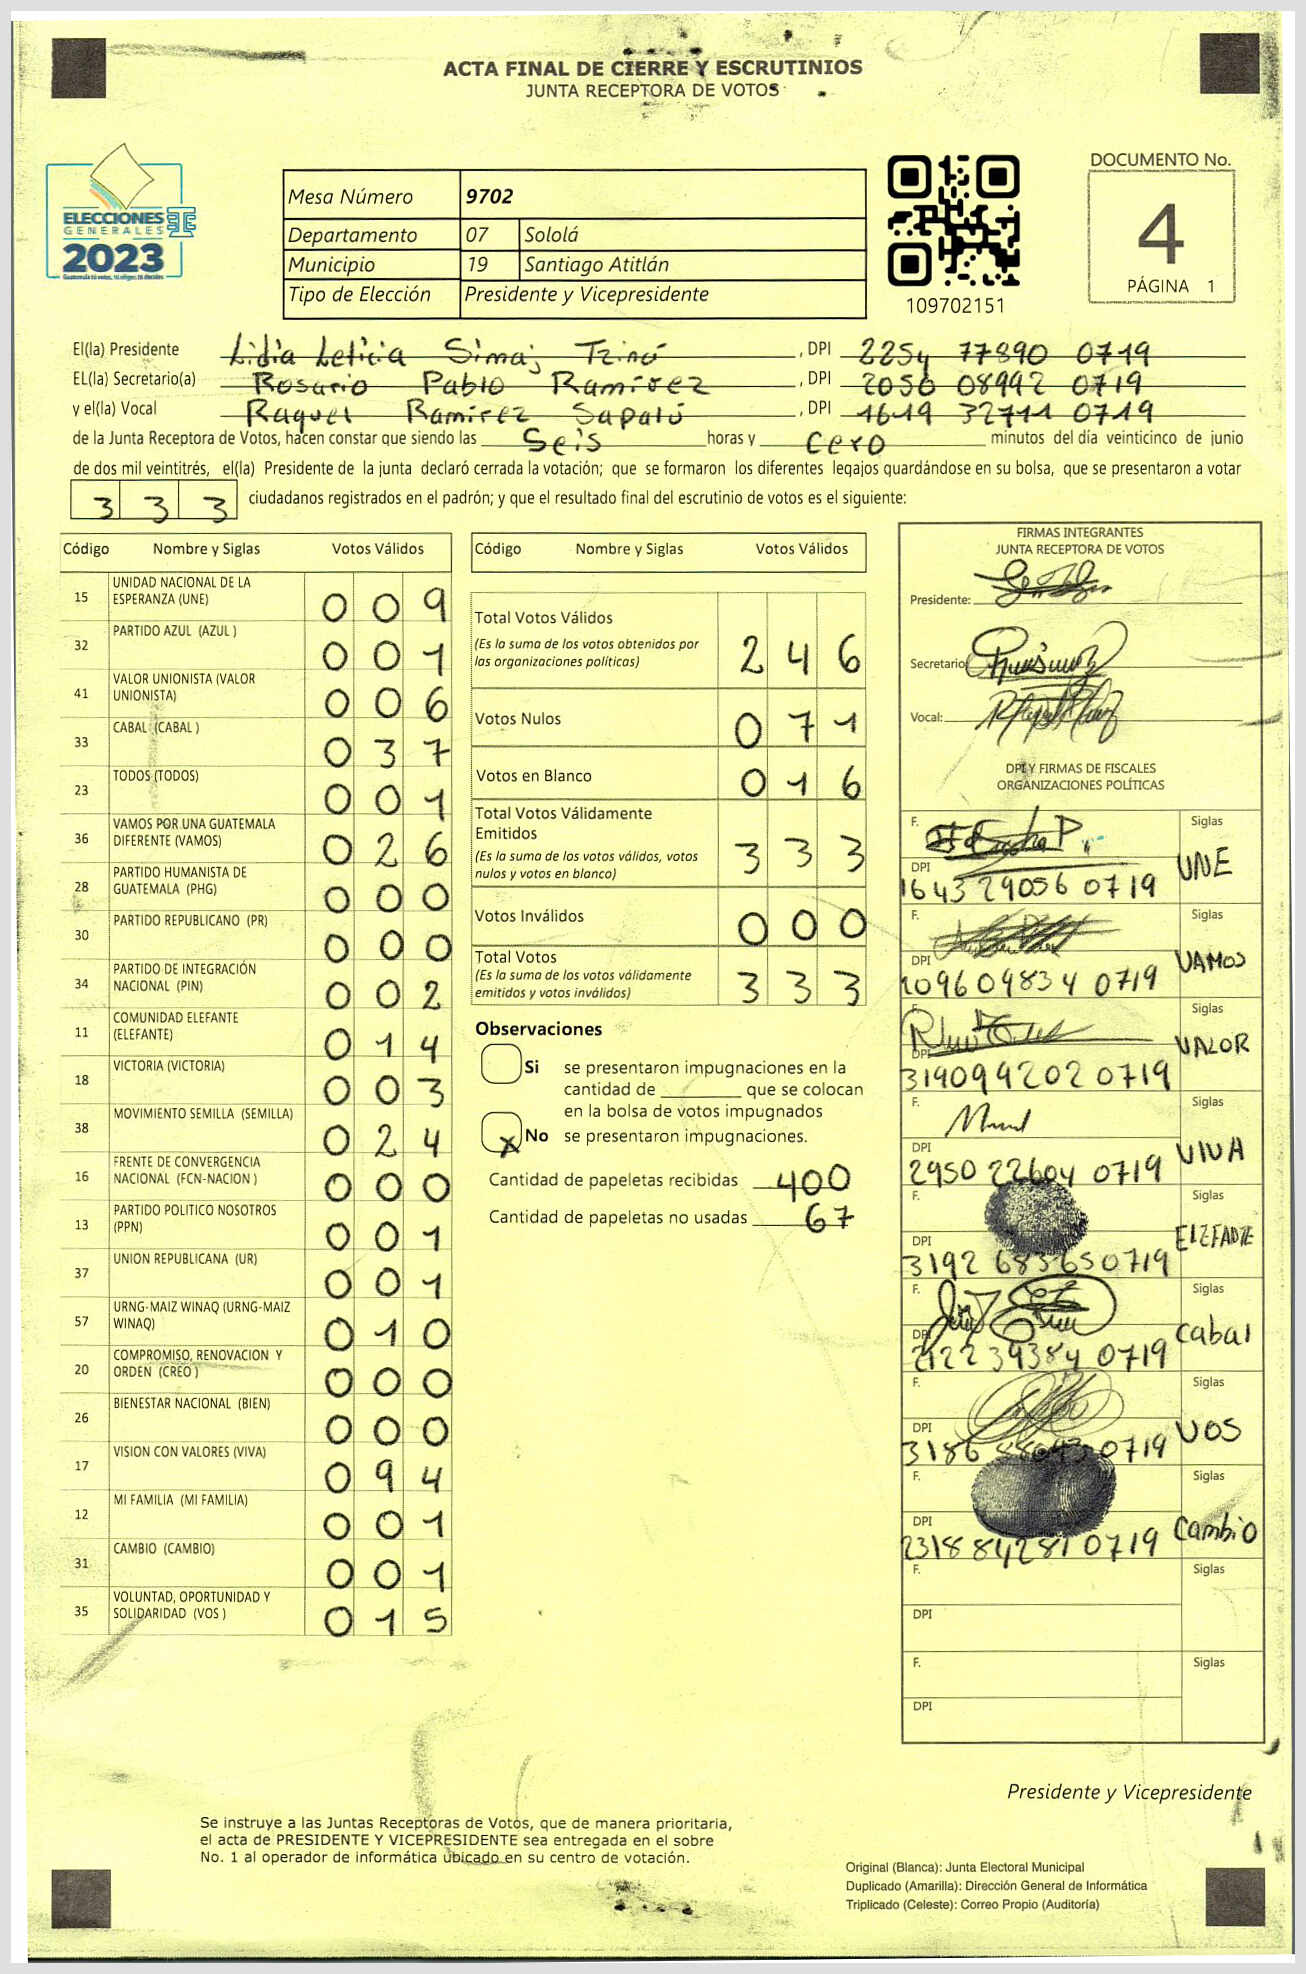 ACTA FINAL DE CIERRE Y ESCRUTINIOS
JUNTA RECEPTORA DE VOTOS
ELECCIONES
GENERALES
2023
Mesa Número 9702
Departamento 07 Sololá
Municipio 19 Santiago Atitlán
Tipo de Elección Presidente y Vicepresidente
109702151
DOCUMENTO No.
4
PÁGINA 1
El(la) Presidente Lidia Leticia Simaj Tzina , DPI 2254 77890 0719
EL(la) Secretario(a) Rosario Pablo Ramirez , DPI 2056 08992 0719
y el(la) Vocal Raquel Ramirez Sapalú , DPI 1619 32711 0719
de la Junta Receptora de Votos, hacen constar que siendo las Seis horas y cero minutos del día veinticinco de junio
de dos mil veintitrés, el(la) Presidente de la junta declaró cerrada la votación; que se formaron los diferentes legajos guardándose en su bolsa, que se presentaron a votar
3 3 3 ciudadanos registrados en el padrón; y que el resultado final del escrutinio de votos es el siguiente:
Código Nombre y Siglas Votos Válidos
15 UNIDAD NACIONAL DE LA ESPERANZA (UNE) 0 0 9
32 PARTIDO AZUL (AZUL ) 0 0 1
41 VALOR UNIONISTA (VALOR UNIONISTA) 0 0 6
33 CABAL (CABAL ) 0 3 7
23 TODOS (TODOS) 0 0 1
36 VAMOS POR UNA GUATEMALA DIFERENTE (VAMOS) 0 2 6
28 PARTIDO HUMANISTA DE GUATEMALA (PHG) 0 0 0
30 PARTIDO REPUBLICANO (PR) 0 0 0
34 PARTIDO DE INTEGRACIÓN NACIONAL (PIN) 0 0 2
11 COMUNIDAD ELEFANTE (ELEFANTE) 0 1 4
18 VICTORIA (VICTORIA) 0 0 3
38 MOVIMIENTO SEMILLA (SEMILLA) 0 2 4
16 FRENTE DE CONVERGENCIA NACIONAL (FCN-NACION ) 0 0 0
13 PARTIDO POLITICO NOSOTROS (PPN) 0 0 1
37 UNION REPUBLICANA (UR) 0 0 1
57 URNG-MAIZ WINAQ (URNG-MAIZ WINAQ) 0 1 0
20 COMPROMISO, RENOVACION Y ORDEN (CREO ) 0 0 0
26 BIENESTAR NACIONAL (BIEN) 0 0 0
17 VISION CON VALORES (VIVA) 0 9 4
12 MI FAMILIA (MI FAMILIA) 0 0 1
31 CAMBIO (CAMBIO) 0 0 1
35 VOLUNTAD, OPORTUNIDAD Y SOLIDARIDAD (VOS ) 0 1 5
Código Nombre y Siglas Votos Válidos
Total Votos Válidos 2 4 6
(Es la suma de los votos obtenidos por
las organizaciones políticas)
Votos Nulos 0 7 1
Votos en Blanco 0 1 6
Total Votos Válidamente
Emitidos 3 3 3
(Es la suma de los votos válidos, votos
nulos y votos en blanco)
Votos Inválidos 0 0 0
Total Votos 3 3 3
(Es la suma de los votos válidamente
emitidos y votos inválidos)
Observaciones
Si se presentaron impugnaciones en la
cantidad de ________ que se colocan
en la bolsa de votos impugnados
x No se presentaron impugnaciones.
Cantidad de papeletas recibidas 400
Cantidad de papeletas no usadas 67
FIRMAS INTEGRANTES
JUNTA RECEPTORA DE VOTOS
Presidente:
Secretario
Vocal:
DPI Y FIRMAS DE FISCALES
ORGANIZACIONES POLÍTICAS
F. Siglas
DPI 1643 29056 0719 UNE
F. Siglas
DPI 2096 09834 0719 VAMOS
F. Siglas
DPI 3190 94202 0719 VALOR
F. Siglas
DPI 2950 22604 0719 VIVA
F. Siglas
DPI 3192 68365 0719
F. Siglas
DPI 2122 39384 0719 Cabal
F. Siglas
DPI 3186 0719 VOS
F. Siglas
DPI 2318 84281 0719 Cambio
F. Siglas
DPI
F. Siglas
DPI
Presidente y Vicepresidente
Se instruye a las Juntas Receptoras de Votos, que de manera prioritaria,
el acta de PRESIDENTE Y VICEPRESIDENTE sea entregada en el sobre
No. 1 al operador de informática ubicado en su centro de votación.
Original (Blanca): Junta Electoral Municipal
Duplicado (Amarilla): Dirección General de Informática
Triplicado (Celeste): Correo Propio (Auditoría)